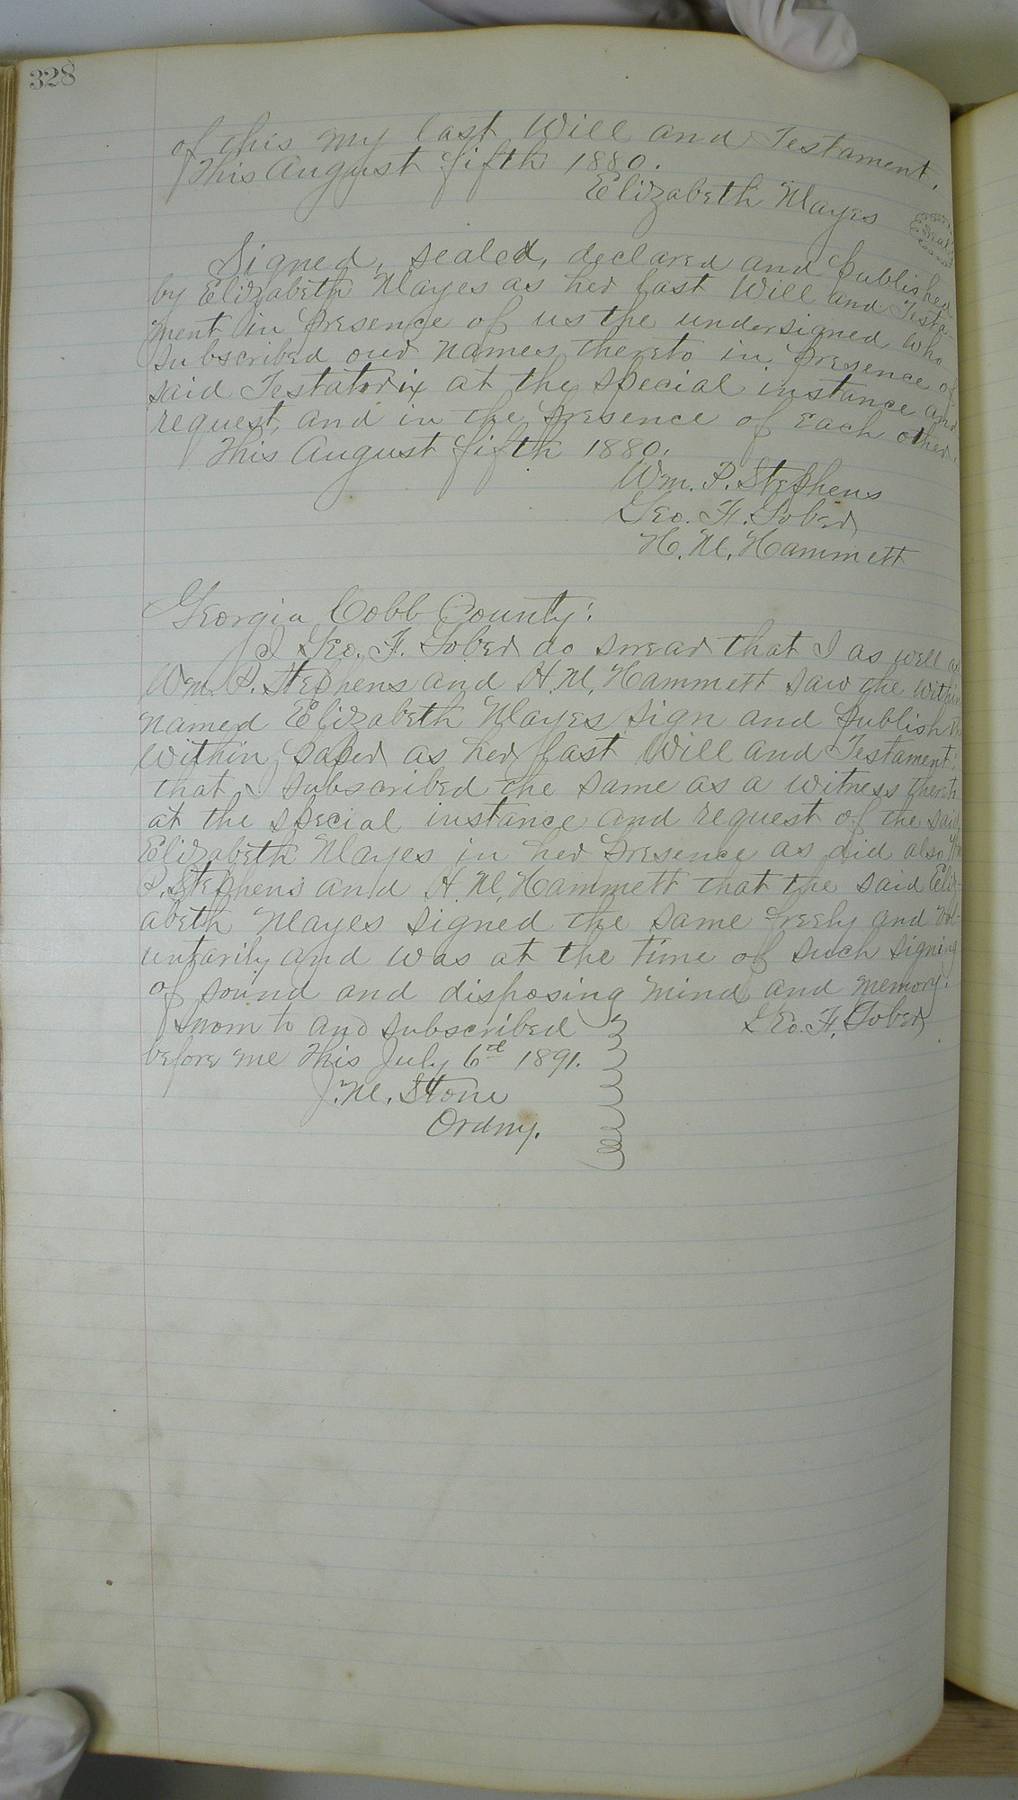 328
of this my last Will and Testament.
This August fifth 1880.
Elizabeth Mayes
Seal
Signed, sealed, declared and published
by Elizabeth Mayes as her last Will and Testa
ment in presence of us the undersigned who
subscribed our names thereto in presence of
said Testatorix at the special instance and
request, and in the presence of Each other.
This August fifth 1880.
Wm. P. Stephens
Geo. F. Gober
H. M. Hammett
Georgia Cobb County:
I Geo. F. Gober do swear that I as well as
Wm. P. Stephens and H. M. Hammett saw the within
named Elizabeth Mayes sign and publish the
within paper as her last Will and Testament;
that I subscribed the same as a witness thereto
at the special instance and request of the said
Elizabeth Mayes in her presence as did also Wm
P. Stephens and H. M. Hammett that the said Eliz-
abeth Mayes signed the same freely and vol-
untarily and was at the time of such signing
of sound and disposing mind and memory.
Sworn to and subscribed Geo. F. Gober
before me this July 6 1891.
J. M. Stone
Ordny.